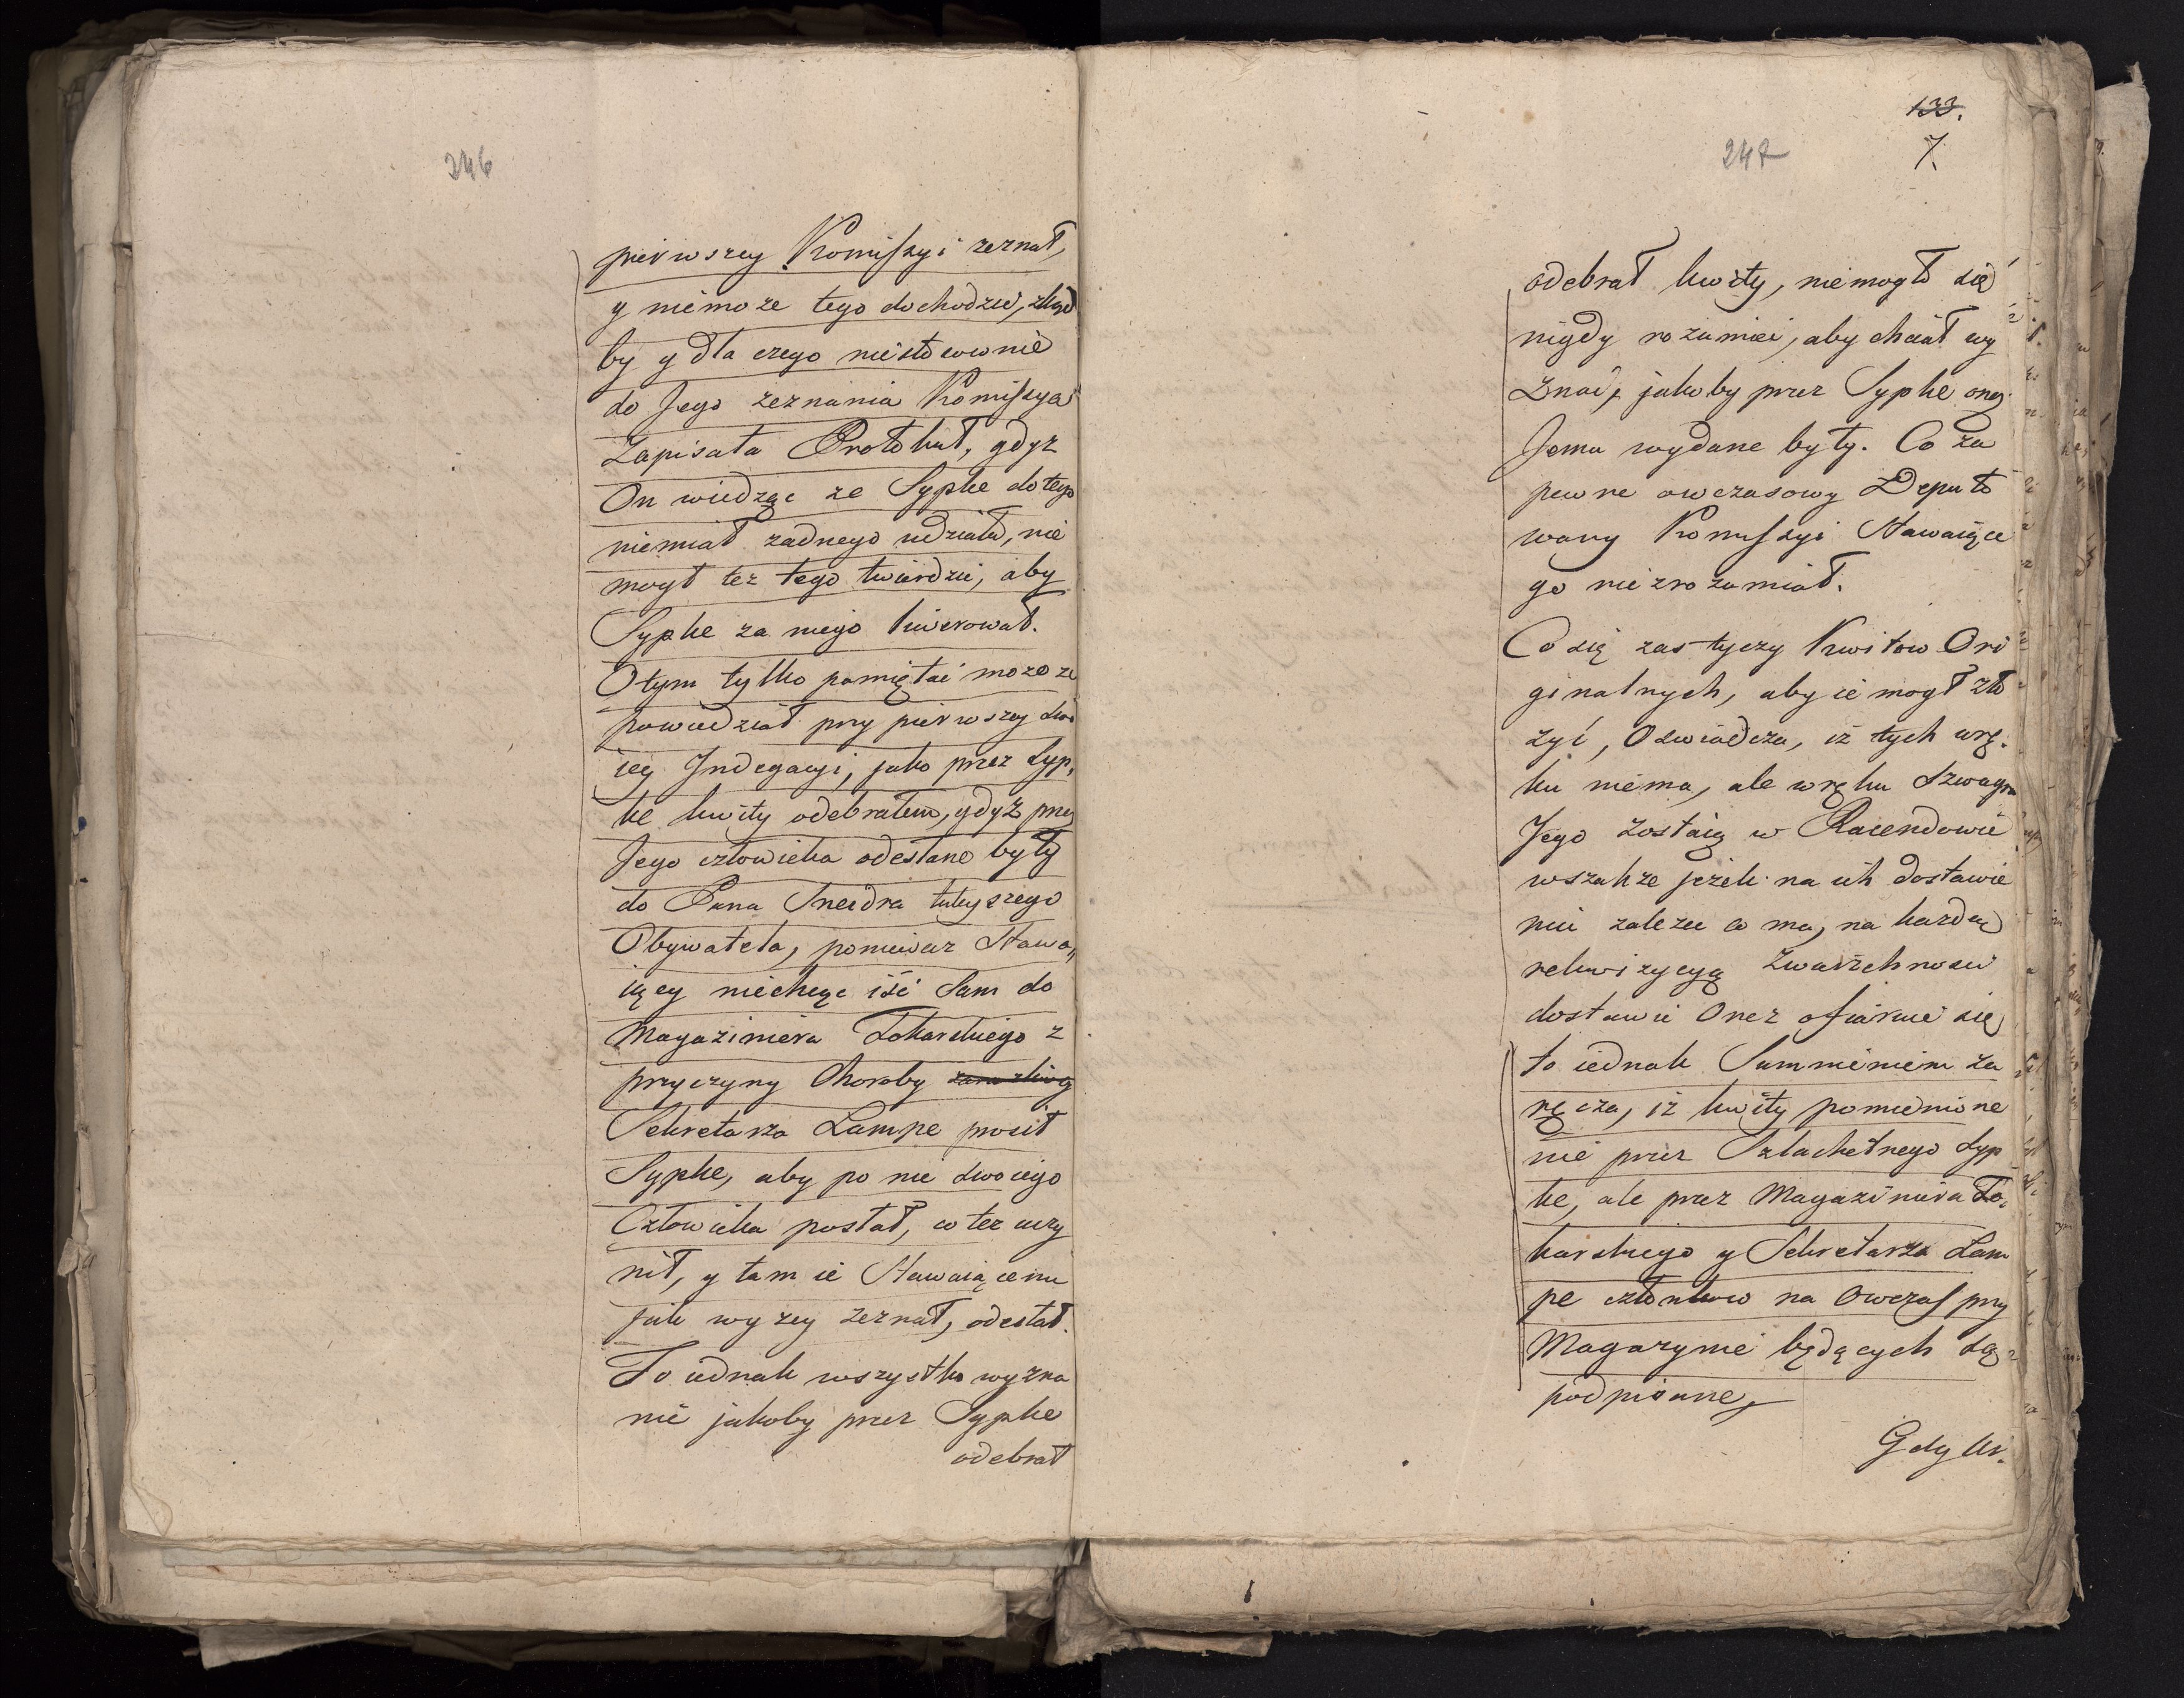 246
pierwszey Komissyi zeznał,
y niemoże tego dochodzić, zkąd
by y dla czego niestosownie
do Jego zeznania Komissya
Zapisała Protokuł, gdyż
On wiedząc że Sypke do tego
niemiał żadnego udziału, nie
mogł też tego twierdzić, aby
Sypke za niego liwerował.
O tym tylko pamiętać może że
powiedział przy pierwszey swo
iey Indegacyi, jako przez Syp,
ke kwity odebrałem, gdyż przez
Jego człowieka odesłane były
do Pana Sneidra tuteyszego
Obywatela, ponieważ Stawa„
iący niechcąc iść Sam do
Magaziniera Tokarskiego z
przyczyny Choroby
Sekretarza Lampe prosił
Sypke, aby po nie swoiego
Człowieka posłał, co też uczy
nił, y tam ie Stawaiącemu
jak wyżey zeznał, odesłał.
To iednak wszystko wyzna
nie jakoby przez Sypke
odebrał
133.
247
7.
odebrał kwity, niemogło się
nigdy rozumieć, aby chciał wy
znać, jakoby przez Sypke one
Jemu wydane były. Co za
pewne owczasowy Deputo
wany Komissyi Stawaiące
go niezrozumiał.
Co się zas tyczy Kwitow Ori
ginalnych, aby ie mogł zło
zyć, Oswiadcza, iż tych w rę.
ku niema, ale w ręku Szwagra
Jego zostaią w Racendowie
wszakże jeżeli na ich dostawie
niu zależeć co ma, na każdą
rekwizycyą Zwierzchności
dostawić Onez ofiaruie się
to iednak Summieniem za
ręcza, iż kwity pomienione
nie przez Szlachetnego Syp
ke, ale przez Magaziniera To„
karskiego y Sekretarza Lam
pe członkow na Owczas przy
Magazynie będących są
podpisane,
Gdy Ur.